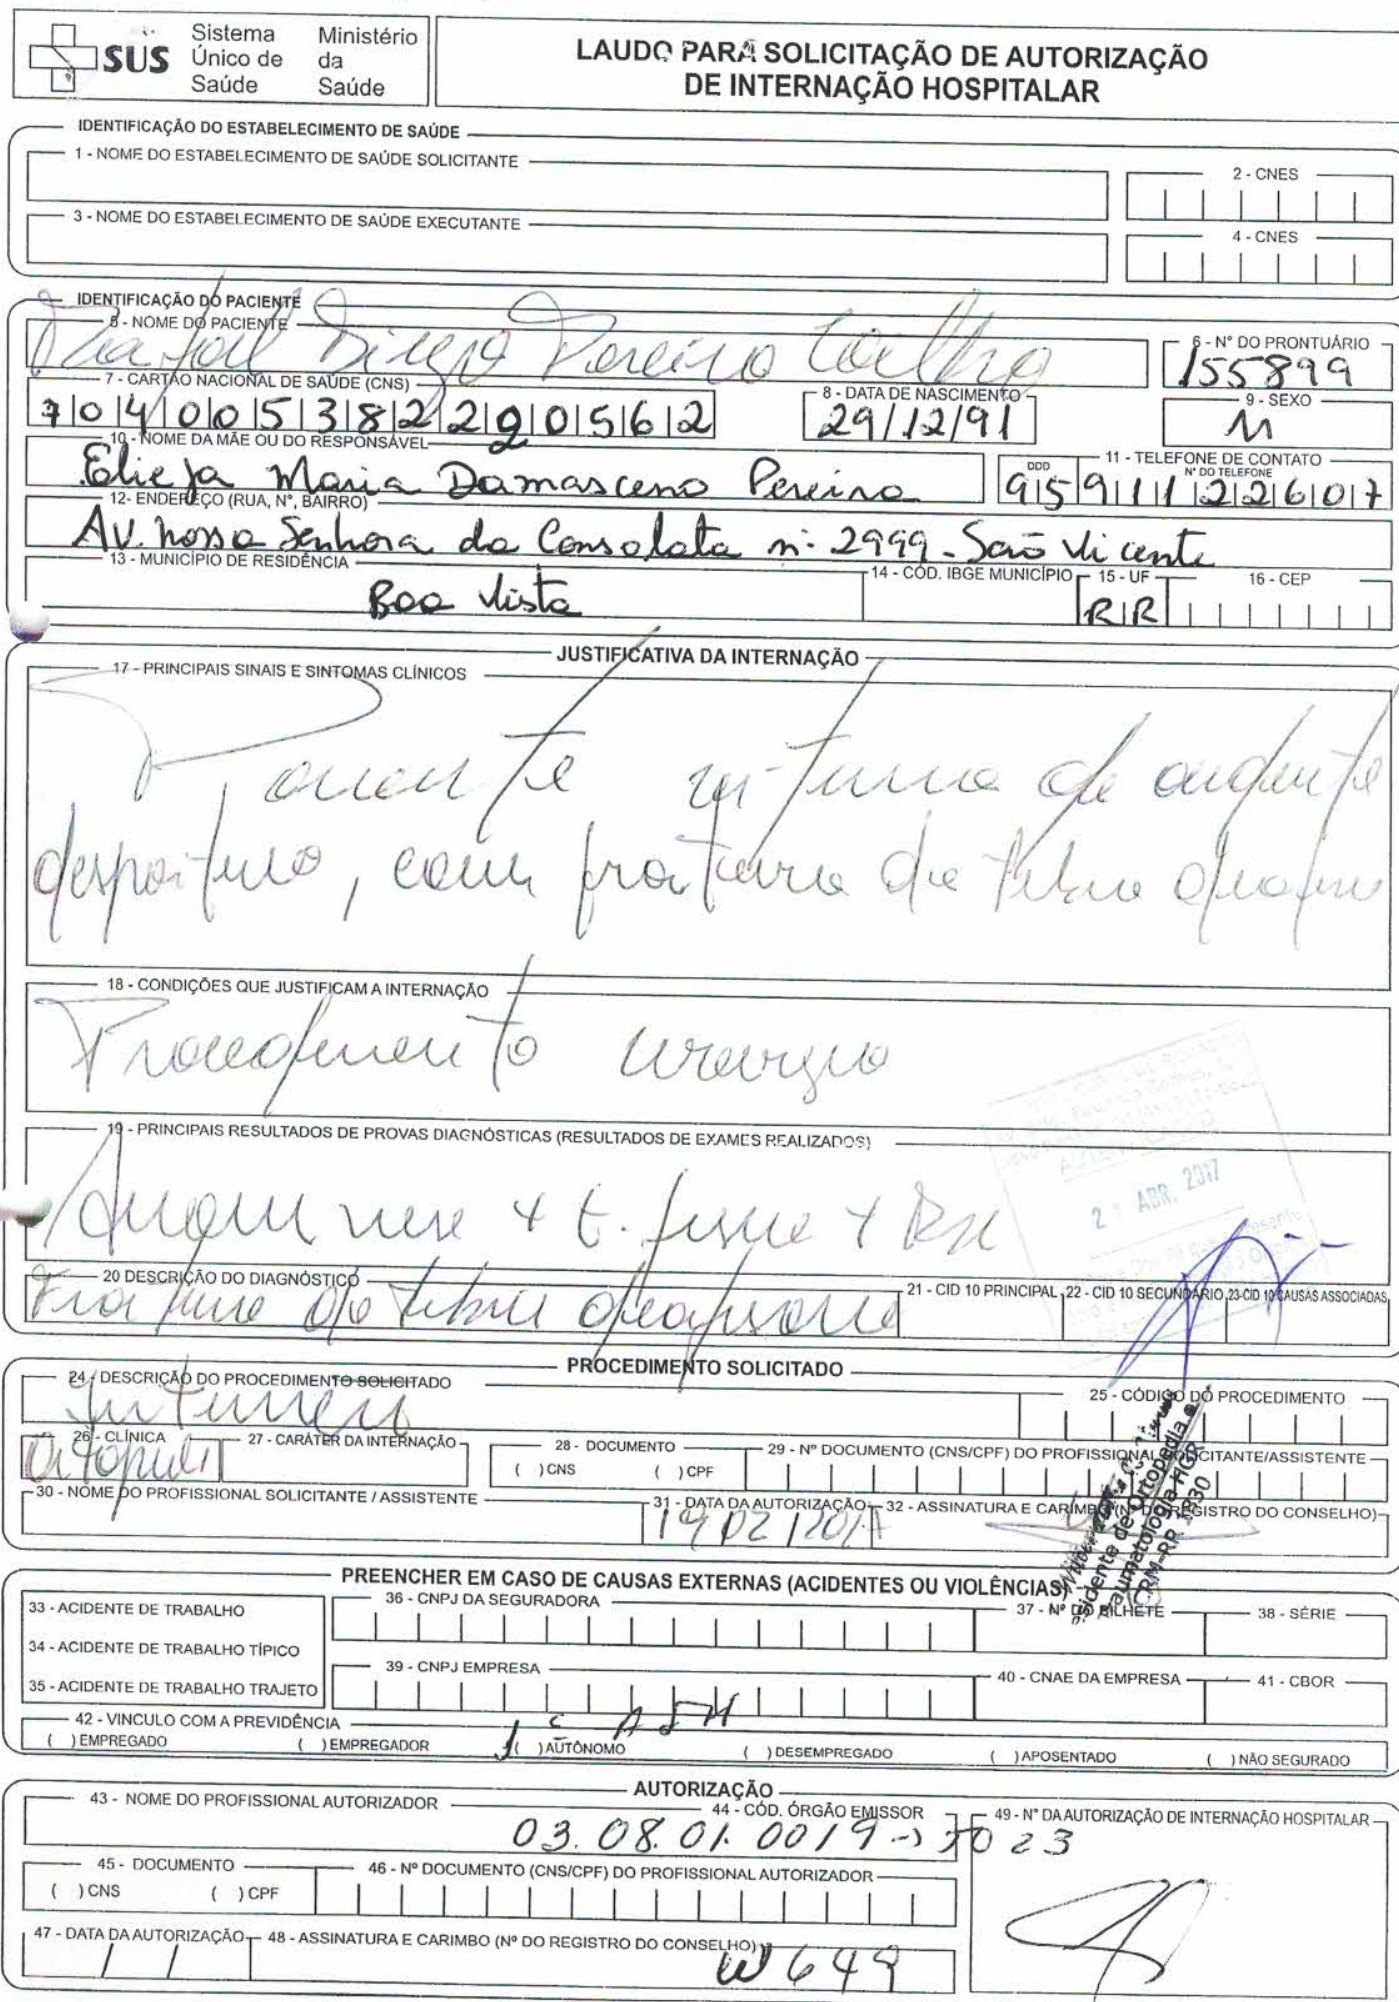 SUS
Sistema Único de Saúde
Ministério da Saúde
LAUDO PARA SOLICITAÇÃO DE AUTORIZAÇÃO
DE INTERNAÇÃO HOSPITALAR
IDENTIFICAÇÃO DO ESTABELECIMENTO DE SAÚDE
1 - NOME DO ESTABELECIMENTO DE SAÚDE SOLICITANTE
2 - CNES
3 - NOME DO ESTABELECIMENTO DE SAÚDE EXECUTANTE
4 - CNES
IDENTIFICAÇÃO DO PACIENTE
5 - NOME DO PACIENTE
Diego Pereira Coelho
6 - N° DO PRONTUÁRIO
155899
7 - CARTÃO NACIONAL DE SAÚDE (CNS)
704005382205562
8 - DATA DE NASCIMENTO
29/12/91
9 - SEXO
M
10 - NOME DA MÃE OU DO RESPONSÁVEL
Maria Damasceno Pereira
11 - TELEFONE DE CONTATO
DDD
N° DO TELEFONE
95 911122607
12- ENDEREÇO (RUA, N°, BAIRRO)
Av. nossa Senhora da Consolata n: 2999 - São Vicente
13 - MUNICÍPIO DE RESIDÊNCIA
Boa Vista
14 - CÓD. IBGE MUNICÍPIO
15 - UF
RR
16 - CEP
JUSTIFICATIVA DA INTERNAÇÃO
17 - PRINCIPAIS SINAIS E SINTOMAS CLÍNICOS
Paciente vítima de acidente
desportivo, com fratura de tibia
18 - CONDIÇÕES QUE JUSTIFICAM A INTERNAÇÃO
Procedimento cirurgico
19 - PRINCIPAIS RESULTADOS DE PROVAS DIAGNÓSTICAS (RESULTADOS DE EXAMES REALIZADOS)
Anamnese + E. fisico + Rx
2 ABR. 2017
20 DESCRIÇÃO DO DIAGNÓSTICO
Fratura de tibia
21 - CID 10 PRINCIPAL
22 - CID 10 SECUNDÁRIO
23-CID 10 CAUSAS ASSOCIADAS
PROCEDIMENTO SOLICITADO
24 - DESCRIÇÃO DO PROCEDIMENTO SOLICITADO
25 - CÓDIGO DO PROCEDIMENTO
26 - CLÍNICA
27 - CARÁTER DA INTERNAÇÃO
28 - DOCUMENTO
( ) CNS ( ) CPF
29 - Nº DOCUMENTO (CNS/CPF) DO PROFISSIONAL SOLICITANTE/ASSISTENTE
30 - NOME DO PROFISSIONAL SOLICITANTE / ASSISTENTE
31 - DATA DA AUTORIZAÇÃO
19/02/2017
32 - ASSINATURA E CARIMBO (Nº DO REGISTRO DO CONSELHO)
Residente de Ortopedia e
Traumatologia HGR
CRM-RR 1830
PREENCHER EM CASO DE CAUSAS EXTERNAS (ACIDENTES OU VIOLÊNCIAS)
33 - ACIDENTE DE TRABALHO
36 - CNPJ DA SEGURADORA
37 - Nº DO BILHETE
38 - SÉRIE
34 - ACIDENTE DE TRABALHO TÍPICO
35 - ACIDENTE DE TRABALHO TRAJETO
39 - CNPJ EMPRESA
40 - CNAE DA EMPRESA
41 - CBOR
42 - VINCULO COM A PREVIDÊNCIA
( ) EMPREGADO ( ) EMPREGADOR ( ) AUTÔNOMO ( ) DESEMPREGADO ( ) APOSENTADO ( ) NÃO SEGURADO
AUTORIZAÇÃO
43 - NOME DO PROFISSIONAL AUTORIZADOR
44 - CÓD. ÓRGÃO EMISSOR
03.08.01.0019
49 - N° DA AUTORIZAÇÃO DE INTERNAÇÃO HOSPITALAR
45 - DOCUMENTO
( ) CNS ( ) CPF
46 - Nº DOCUMENTO (CNS/CPF) DO PROFISSIONAL AUTORIZADOR
47 - DATA DA AUTORIZAÇÃO
/ /
48 - ASSINATURA E CARIMBO (Nº DO REGISTRO DO CONSELHO)
W649